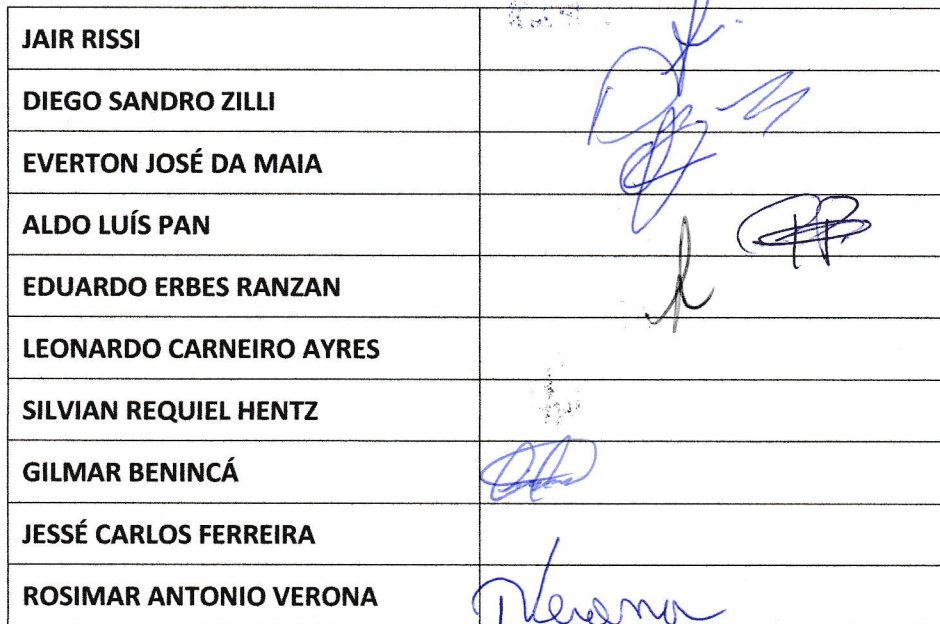 JAIR RISSI
DIEGO SANDRO ZILLI
EVERTON JOSÉ DA MAIA
ALDO LUÍS PAN
EDUARDO ERBES RANZAN
LEONARDO CARNEIRO AYRES
SILVIAN REQUIEL HENTZ
GILMAR BENINCÁ
JESSÉ CARLOS FERREIRA
ROSIMAR ANTONIO VERONA